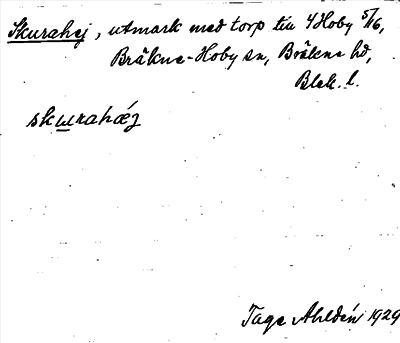 Skurahej, utmark med torp till 4 Hoby 5/16,
Bräkne-Hoby sn, Bräkne hd,
Blek. l.
skɯrahæj
Tage Ahldén 1929